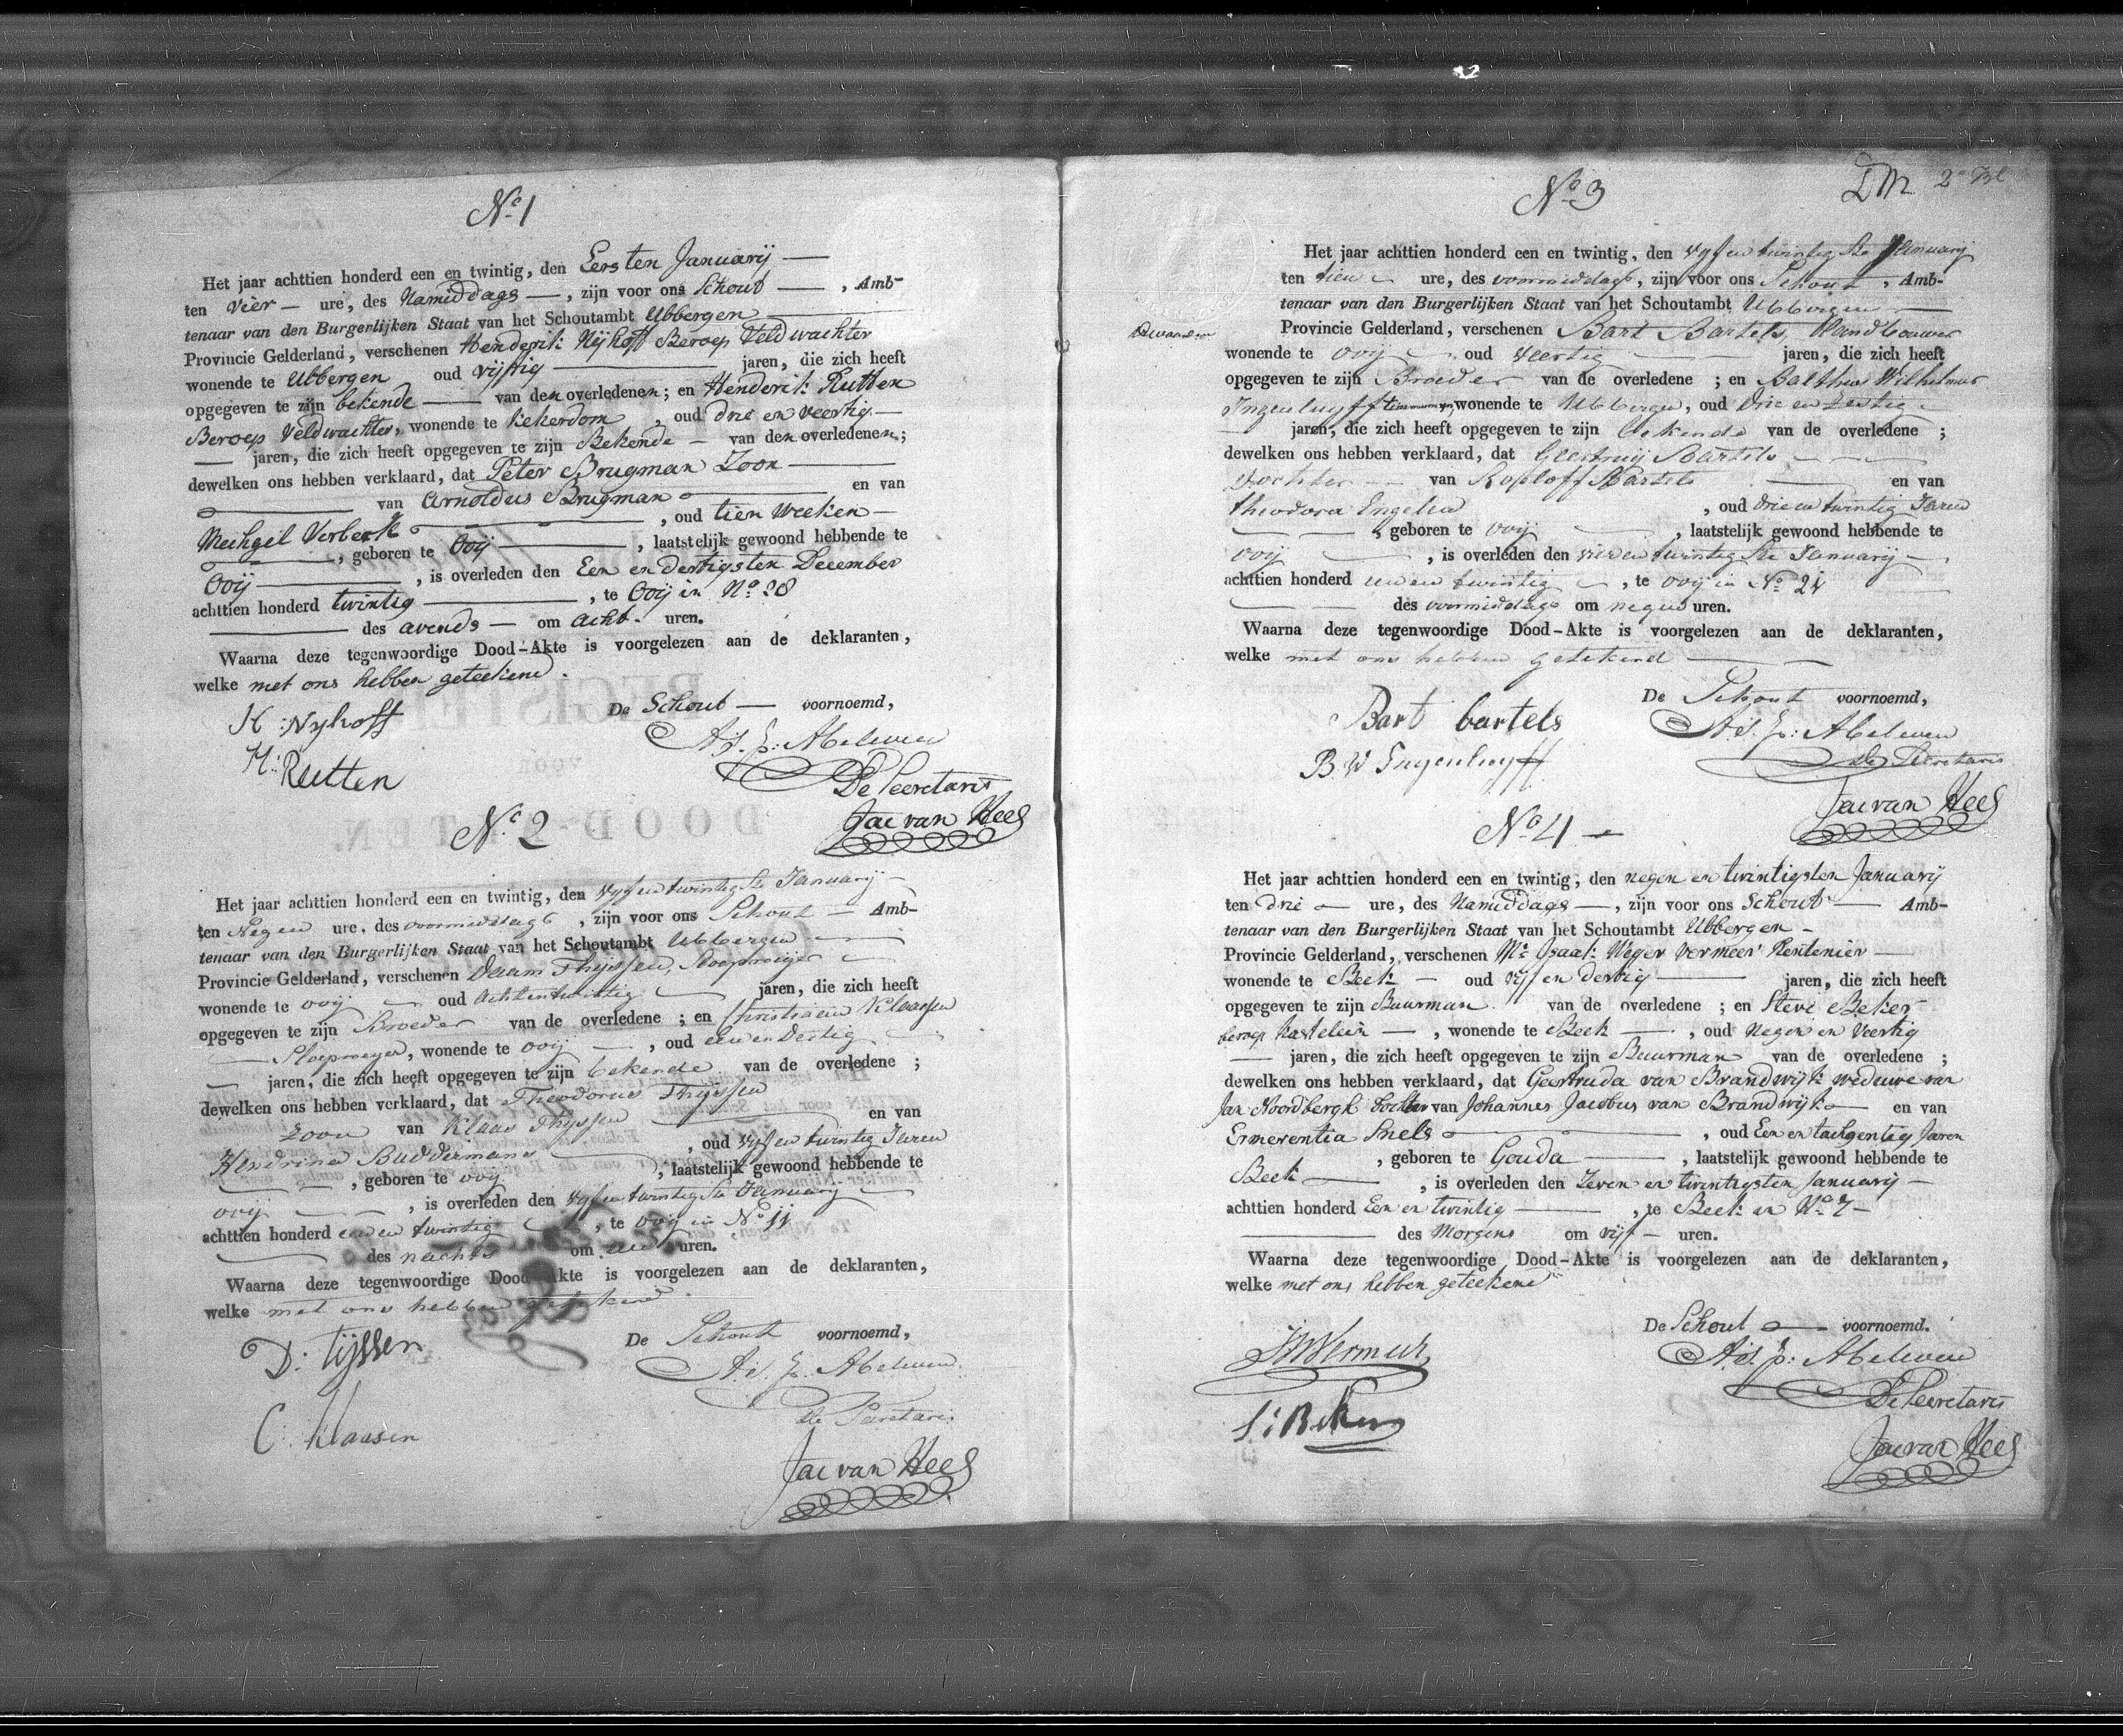 No 1
Het jaar achttien honderd een en twintig, den Eersten Januarij
ten vier ure, des Namiddags, zijn voor ons Schout, Amb-
tenaar van den Burgerlijken Staat van het Schoutambt Ubbergen
Provincie Gelderland, verschenen Henderik Nijhoff Beroep Veldwachter
wonende te Ubbergen oud vijftig jaren, die zich heeft
opgegeven te zijn bekende van den overledenen; en Henderik Rutten
Beroep Veldwachter, wonende te Kekerdom, oud drie en veertig
jaren, die zich heeft opgegeven te zijn Bekende van den overledenen;
dewelken ons hebben verklaard, dat Peter Brugman Zoon
van Arnoldus Brugman en van
Mechgel Verberk, oud tien weeken
, geboren te Ooij, laatstelijk gewoond hebbende te
Ooij, is overleden den Een en dertigsten December
achttien honderd twintig, te Ooij in No 28
des avends om acht uren.
Waarna deze tegenwoordige Dood-Akte is voorgelezen aan de deklaranten,
welke met ons hebben geteekend.
De Schout voornoemd,
H: Nyhoff
H: Rutten
De Secretaris
Jac van Hees
No 2
Het jaar achttien honderd een en twintig, den vyf en twintigste January
ten Negen ure, des voormiddags, zijn voor ons Schout Amb-
tenaar van den Burgerlijken Staat van het Schoutambt Ubbergen
Provincie Gelderland, verschenen Daam Thyssen,
wonende te ooij oud achtentwintig jaren, die zich heeft
opgegeven te zijn Broeder van de overledene; en Christiaan Klaassen
wonende te ooij, oud een en dertig
jaren, die zich heeft opgegeven te zijn bekende van de overledene;
dewelken ons hebben verklaard, dat Theodorus Thyssen
Zoon van Klaas Thyssen en van
Hendrina Buddermans, oud vyf en twintig Jaren
, geboren te ooij, laatstelijk gewoond hebbende te
ooij, is overleden den vyf en twintigste January
achttien honderd een en twintig, te ooij in No 11
des nachts om een uren.
Waarna deze tegenwoordige Dood-Akte is voorgelezen aan de deklaranten,
welke met ons hebben getekend.
De Schout voornoemd,
D: tijssen
C: klaasen
de Secretaris
Jac van Hees
No 3
2e Bl
Het jaar achttien honderd een en twintig, den vyf en twintigste January
ten tien ure, des voormiddags, zijn voor ons Schout, Amb-
tenaar van den Burgerlijken Staat van het Schoutambt Ubbergen
Provincie Gelderland, verschenen Bart Bartels, Handbouwer
wonende te ooij oud veertig jaren, die zich heeft
opgegeven te zijn Broeder van de overledene; en Balthus Wilhelmus
Ingenluyff timmerman, wonende te Ubbergen, oud drie en Zestig
jaren, die zich heeft opgegeven te zijn bekende van de overledene;
dewelken ons hebben verklaard, dat Geertruij Bartels
Dochter van Roeloff Bartels en van
theodora Engelen, oud drie en twintig Jaren
, geboren te ooij, laatstelijk gewoond hebbende te
ooij, is overleden den vier en twintigste January
achttien honderd een en twintig, te ooij in No 24
des voormiddags om negen uren.
Waarna deze tegenwoordige Dood-Akte is voorgelezen aan de deklaranten,
welke met ons hebben getekend
De Schout voornoemd,
Bart bartels
B. W Ingenluyff
De Secretaris
Jac van Hees
No 4
Het jaar achttien honderd een en twintig, den negen en twintigsten Januarij
ten drie ure, des Namiddags, zijn voor ons Schout Amb-
tenaar van den Burgerlijken Staat van het Schoutambt Ubbergen
Provincie Gelderland, verschenen Mr Isaak Weger Vermeer Rentenier
wonende te Beek oud vijf en dertig jaren, die zich heeft
opgegeven te zijn Buurman van de overledene; en Steve Beker
beroep Kastelein, wonende te Beek, oud Negen en Veertig
jaren, die zich heeft opgegeven te zijn Buurman van de overledene;
dewelken ons hebben verklaard, dat Geertruda van Brandwijk weduwe van
Jan Noordbergh dochter van Johannes Jacobus van Brandwijk en van
Ermerentia Snels, oud Een en tachgentig Jaren
, geboren te Gouda, laatstelijk gewoond hebbende te
Beek, is overleden den Zeven en twintigsten Januarij
achttien honderd Een en twintig, te Beek in No 7
des Morgens om vijf uren.
Waarna deze tegenwoordige Dood-Akte is voorgelezen aan de deklaranten,
welke met ons hebben geteekend
De Schout voornoemd.
S: Beker
De Secretaris
Jac van Hees